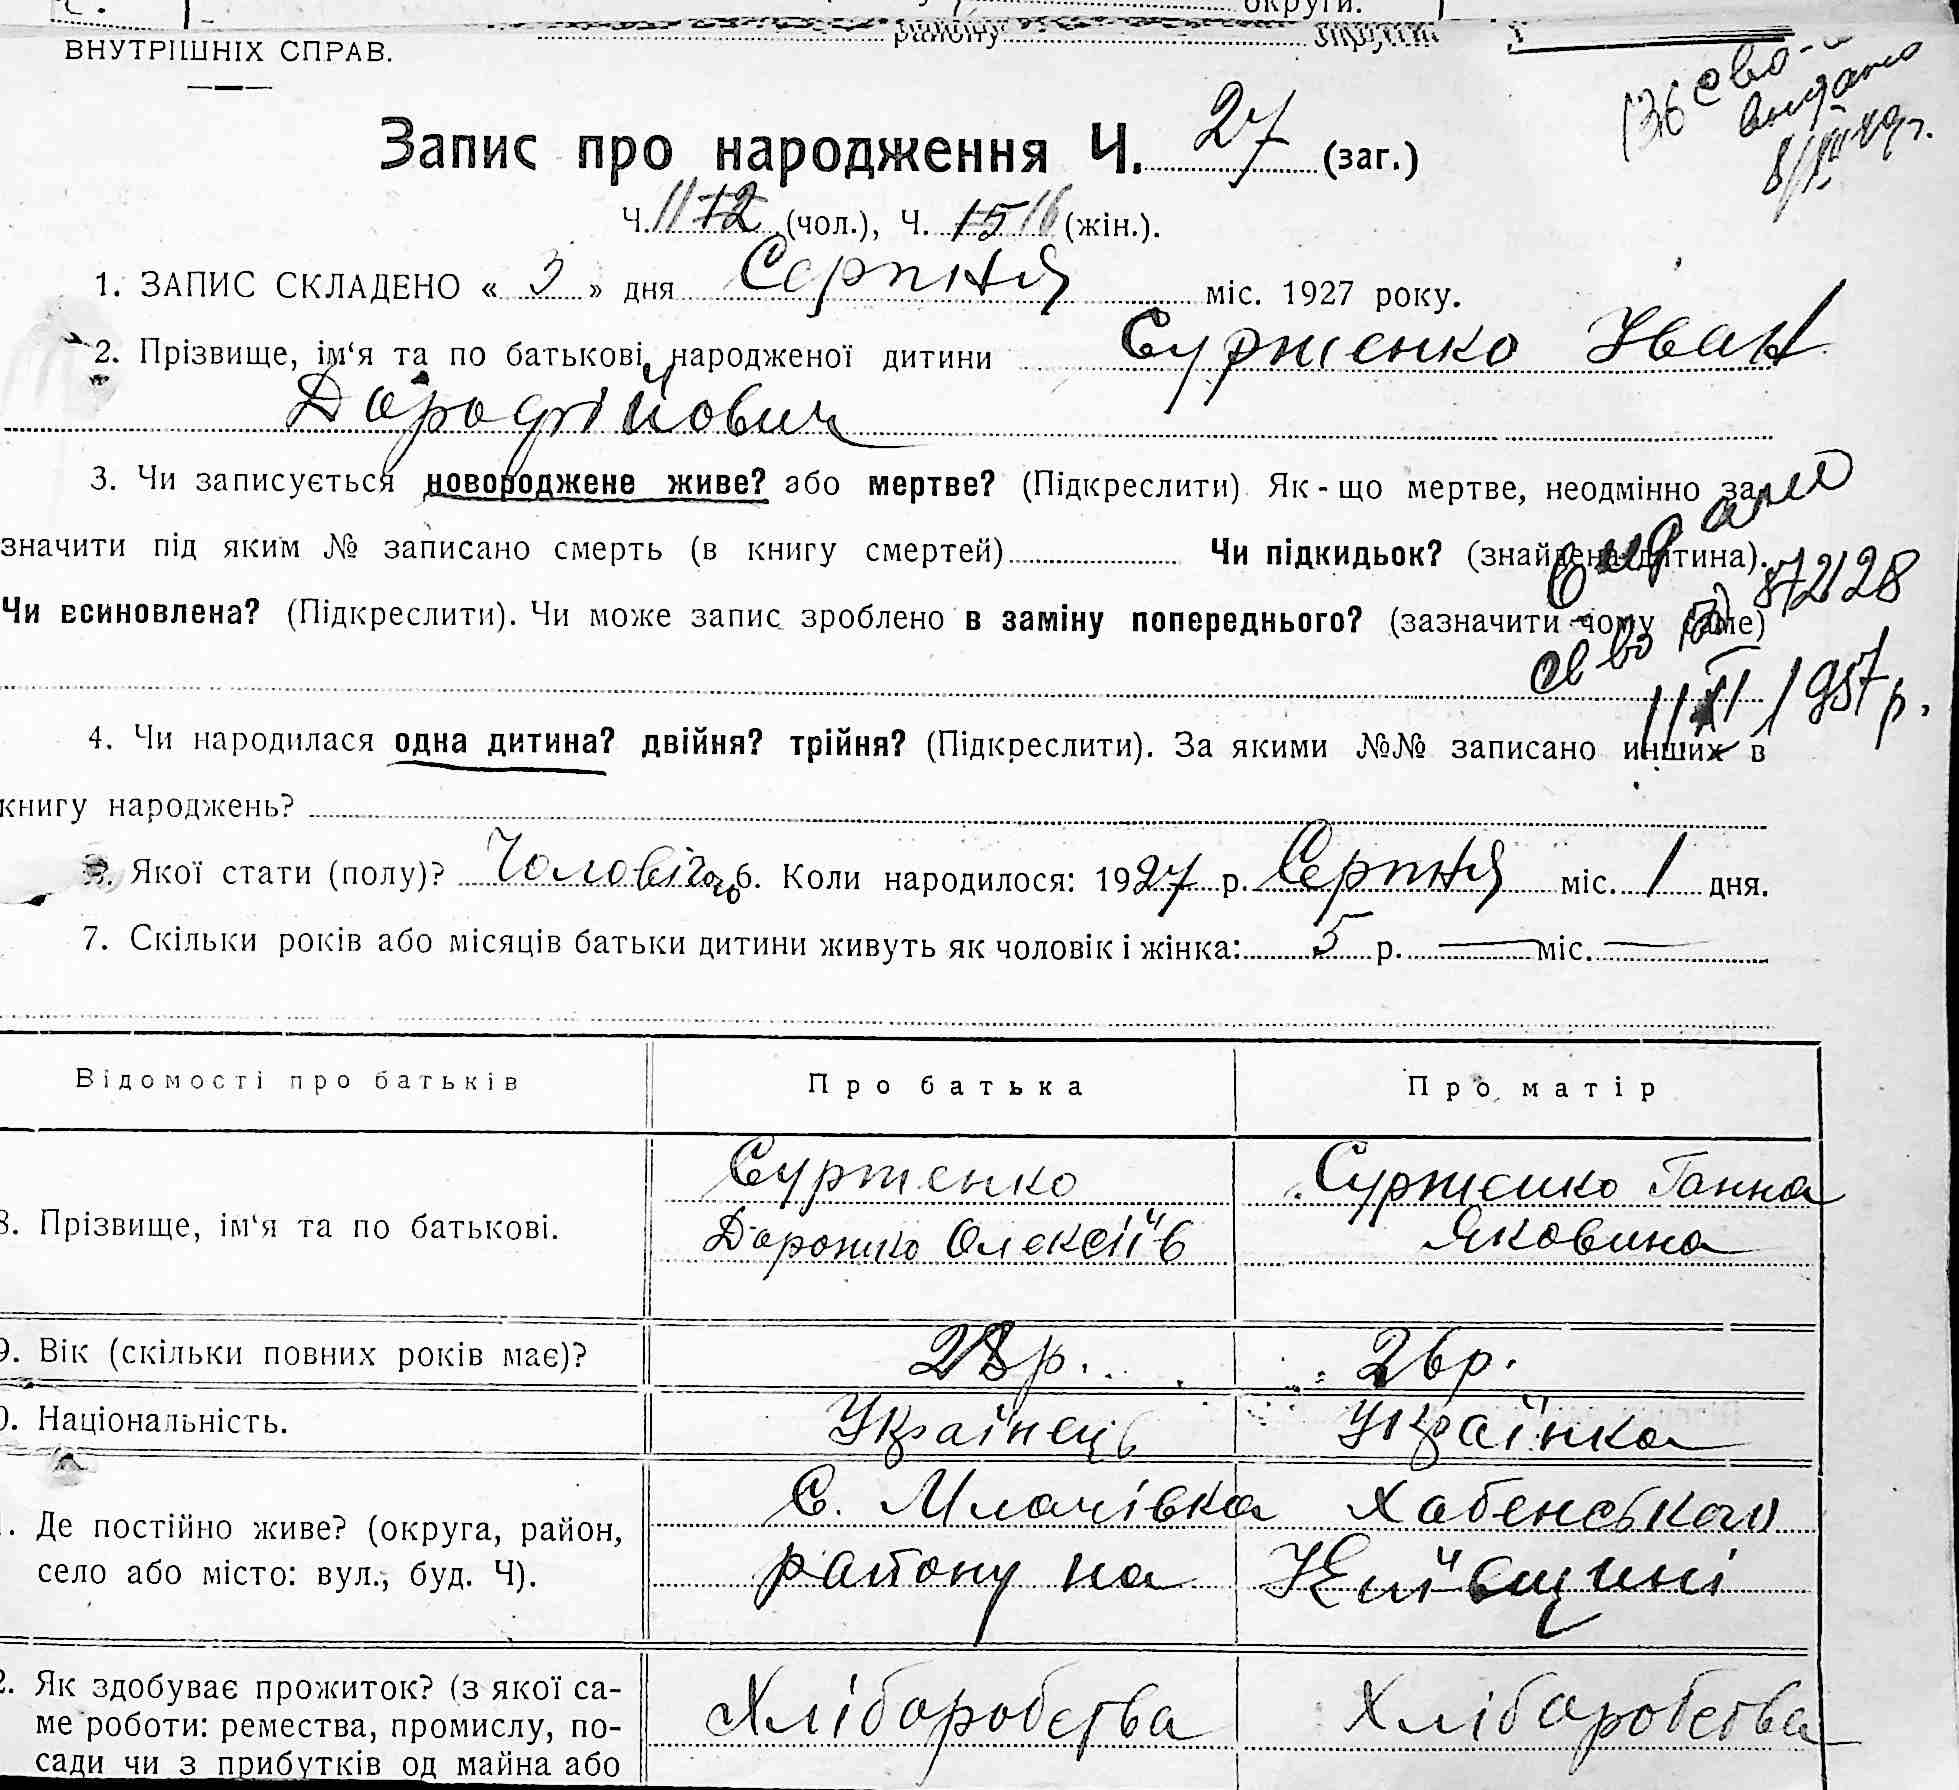 округи.
району
ВНУТРІШНІХ СПРАВ.
видано
Запис про народження Ч. 27 (заг.)
Ч. 11 12 (чол.), Ч. 15 16 (жін.).
1. ЗАПИС СКЛАДЕНО « 3 » дня Серпня міс. 1927 року.
2. Прізвище, ім‘я та по батькові народженої дитини Сурженко Іван
Дорофійович
3. Чи записується новороджене живе? або мертве? (Підкреслити) Як-що мертве, неодмінно за-
значити під яким № записано смерть (в книгу смертей) Чи підкидьок? (знайдена дитина).
Чи всиновлена? (Підкреслити). Чи може запис зроблено в заміну попереднього? (зазначити чому саме)
видано
св во 872128
11 XI 1957 р.
4. Чи народилася одна дитина? двійня? трійня? (Підкреслити). За якими №№ записано инших в
книгу народжень?
Якої стати (полу)? Чоловічого 6. Коли народилося: 1927 р. Серпня міс. 1 дня.
7. Скільки років або місяців батьки дитини живуть як чоловік і жінка: 5 р. — міс. —
Відомості про батьків Про батька Про матір
8. Прізвище, ім‘я та по батькові. Сурженко Сурженко Ганна
Дорошко Олексіїв Яковина
9. Вік (скільки повних років має)? 28 р. 26 р.
0. Національність. Українець Українка
. Де постійно живе? (округа, район, С. Млачівка Хабенського
село або місто: вул., буд. Ч). району на Київщині
2. Як здобуває прожиток? (з якої са- Хліборобства Хліборобства
ме роботи: ремества, промислу, по-
сади чи з прибутків од майна або